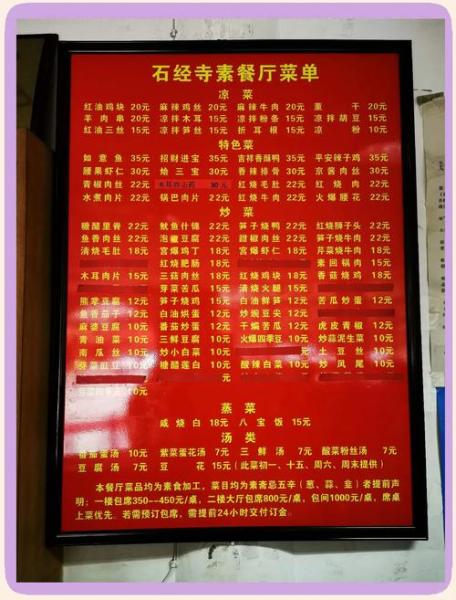 石经寺素餐厅菜单
凉 菜
红油鸡块 20元 麻辣鸡丝 20元 麻辣牛肉 20元 熏 干 20元
羊肉串 20元 凉拌木耳 15元 凉拌粉条 15元 凉拌胡豆 15元
红油三丝 15元 凉拌笋丝 15元 折耳根 15元 凉 粉 10元
特色菜
如意鱼 35元 招财进宝 35元 吉祥香酥鸭 35元 平安辣子鸡 35元
腰果虾仁 30元 烩三宝 30元 香辣排骨 30元 京酱肉丝 30元
青椒肉丝 22元 30元 红烧毛肚 22元 红烧肉 22元
水煮肉片 22元 锅巴肉片 22元 红烧牛肉 22元 火爆腰花 22元
炒 菜
糖醋里脊 22元 鱿鱼什锦 22元 笋子烧鸭 22元 红烧狮子头 22元
鱼香肉丝 22元 泡椒豆腐 22元 甜椒肉丝 22元 笋子烧牛肉 22元
清烧毛肚 18元 宫爆鸡丁 18元 宫爆虾仁 18元 芹菜烧牛肉 18元
红烧肥肠 18元 素回锅肉 15元
木耳肉片 15元 三菇肉丝 18元 红烧鸡块 18元 香菇烧鸡 18元
芽菜苦瓜 15元 清烧火腿 15元
熊掌豆腐 12元 笋子烧鸡 15元 白油鲜笋 12元 苦瓜炒蛋 12元
鱼香茄子 12元 白油烘蛋 12元 炒豌豆尖 12元
麻婆豆腐 10元 番茄炒蛋 12元 干煸苦瓜 12元 虎皮青椒 12元
青油菜 10元 三鲜豆腐 10元 火爆四季豆 10元 炒蒜泥生菜 10元
南瓜丝 10元 炒小白菜 10元 土豆丝 10元
芽菜豇豆 10元 糖醋莲白 10元 酸辣白菜 10元 炒凤尾 10元
蒸 菜
咸烧白 18元 八宝饭 15元
汤 类
番茄蛋汤 10元 紫菜蛋花汤 7元 三鲜汤 7元 酸菜粉丝汤 7元
豆腐汤 7元 豆 花 15元 (此菜初一、十五、周六、周末提供)
本餐厅菜品均为素食加工，菜目均为素斋忌五辛(葱、蒜、韭)者提前声
明；一楼包席350--450元/桌，二楼大厅包席800元/桌，包间1000元/桌，席桌
上菜优先。若需预订包席，需提前24小时交付订金。